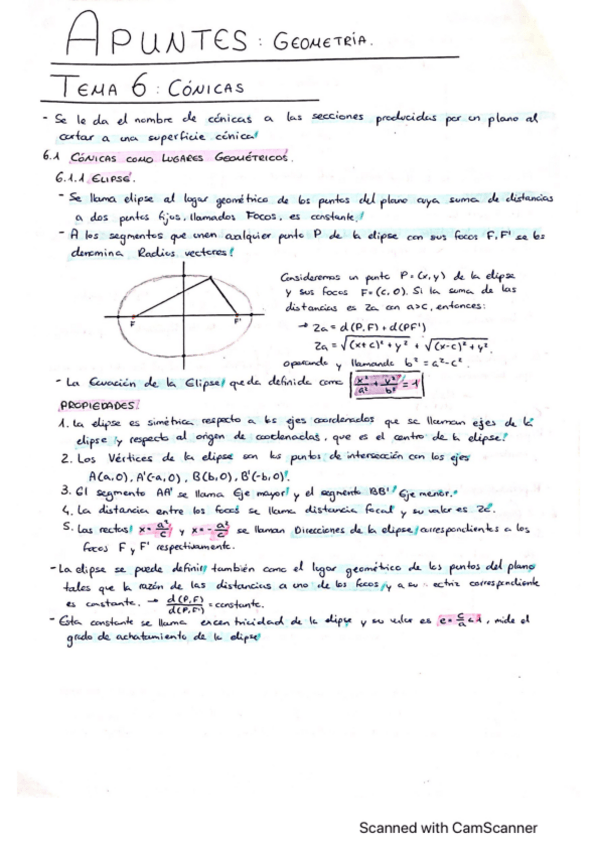 APUNTES: GEOMETRÍA.
TEMA 6: CÓNICAS
- Se le da el nombre de cónicas a las secciones producidas por un plano al
cortar a una superficie cónica
6.1 CÓNICAS COMO LUGARES GEOMÉTRICOS.
6.1.1 ELIPSE.
- Se llama elipse al lugar geométrico de los puntos del plano cuya suma de distancias
a dos puntos fijos, llamados Focos, es constante.
- A los segmentos que unen cualquier punto P de la elipse con sus focos F, F' se les
denomina Radius vectores
Consideremos un punto P=(x,y) de la elipse
y sus focos F=(c,0). Si la suma de las
distancias es 2a con a>c, entonces:
→ 2a = d(P,F) + d(PF')
2a = √(x+c)² + y² + √(x-c)² + y².
operando y llamando b² = a² - c².
F F'
- La Ecuación de la Elipse queda definida como x²/a² + y²/b² = 1
PROPIEDADES
1. La elipse es simétrica respecto a los ejes coordenados que se llaman ejes de la
elipse y respecto al origen de coordenadas, que es el centro de la elipse.
2. Los Vértices de la elipse son los puntos de intersección con los ejes
A(a,0), A'(-a,0), B(b,0), B'(-b,0).
3. El segmento AA' se llama Eje mayor y el segmento BB' Eje menor.
4. La distancia entre los focos se llama distancia focal y su valor es 2c.
5. Las rectas x = a²/c y x = -a²/c se llaman Direcciones de la elipse, correspondientes a los
focos F y F' respectivamente.
- La elipse se puede definir también como el lugar geométrico de los puntos del plano
tales que la razón de las distancias a uno de los focos y a su ectriz correspondiente
es constante. → d(P,F)/d(P,F') = constante.
- Esta constante se llama excentricidad de la elipse y su valor es e = c/a < 1, mide el
grado de achatamiento de la elipse
Scanned with CamScanner